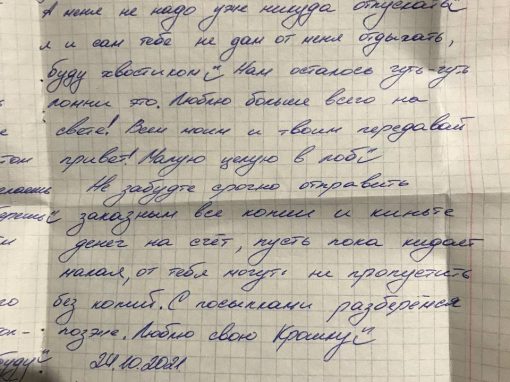 А меня не надо уже никуда отпускать!
я и сам тебе не дам от меня отдыхать,
буду хвостиком! Нам осталось чуть-чуть
помни это. Люблю больше всего на
свете! Всем моим и твоим передавай
привет! Малую целую в лоб!
Не забудте срочно отправить
заказным все копии и киньте
денег на счёт, пусть пока кидает
малая, от тебя могут не пропустить
без копий. С посылками разберёмся
позже. Люблю свою Крошку!
24.10.2021